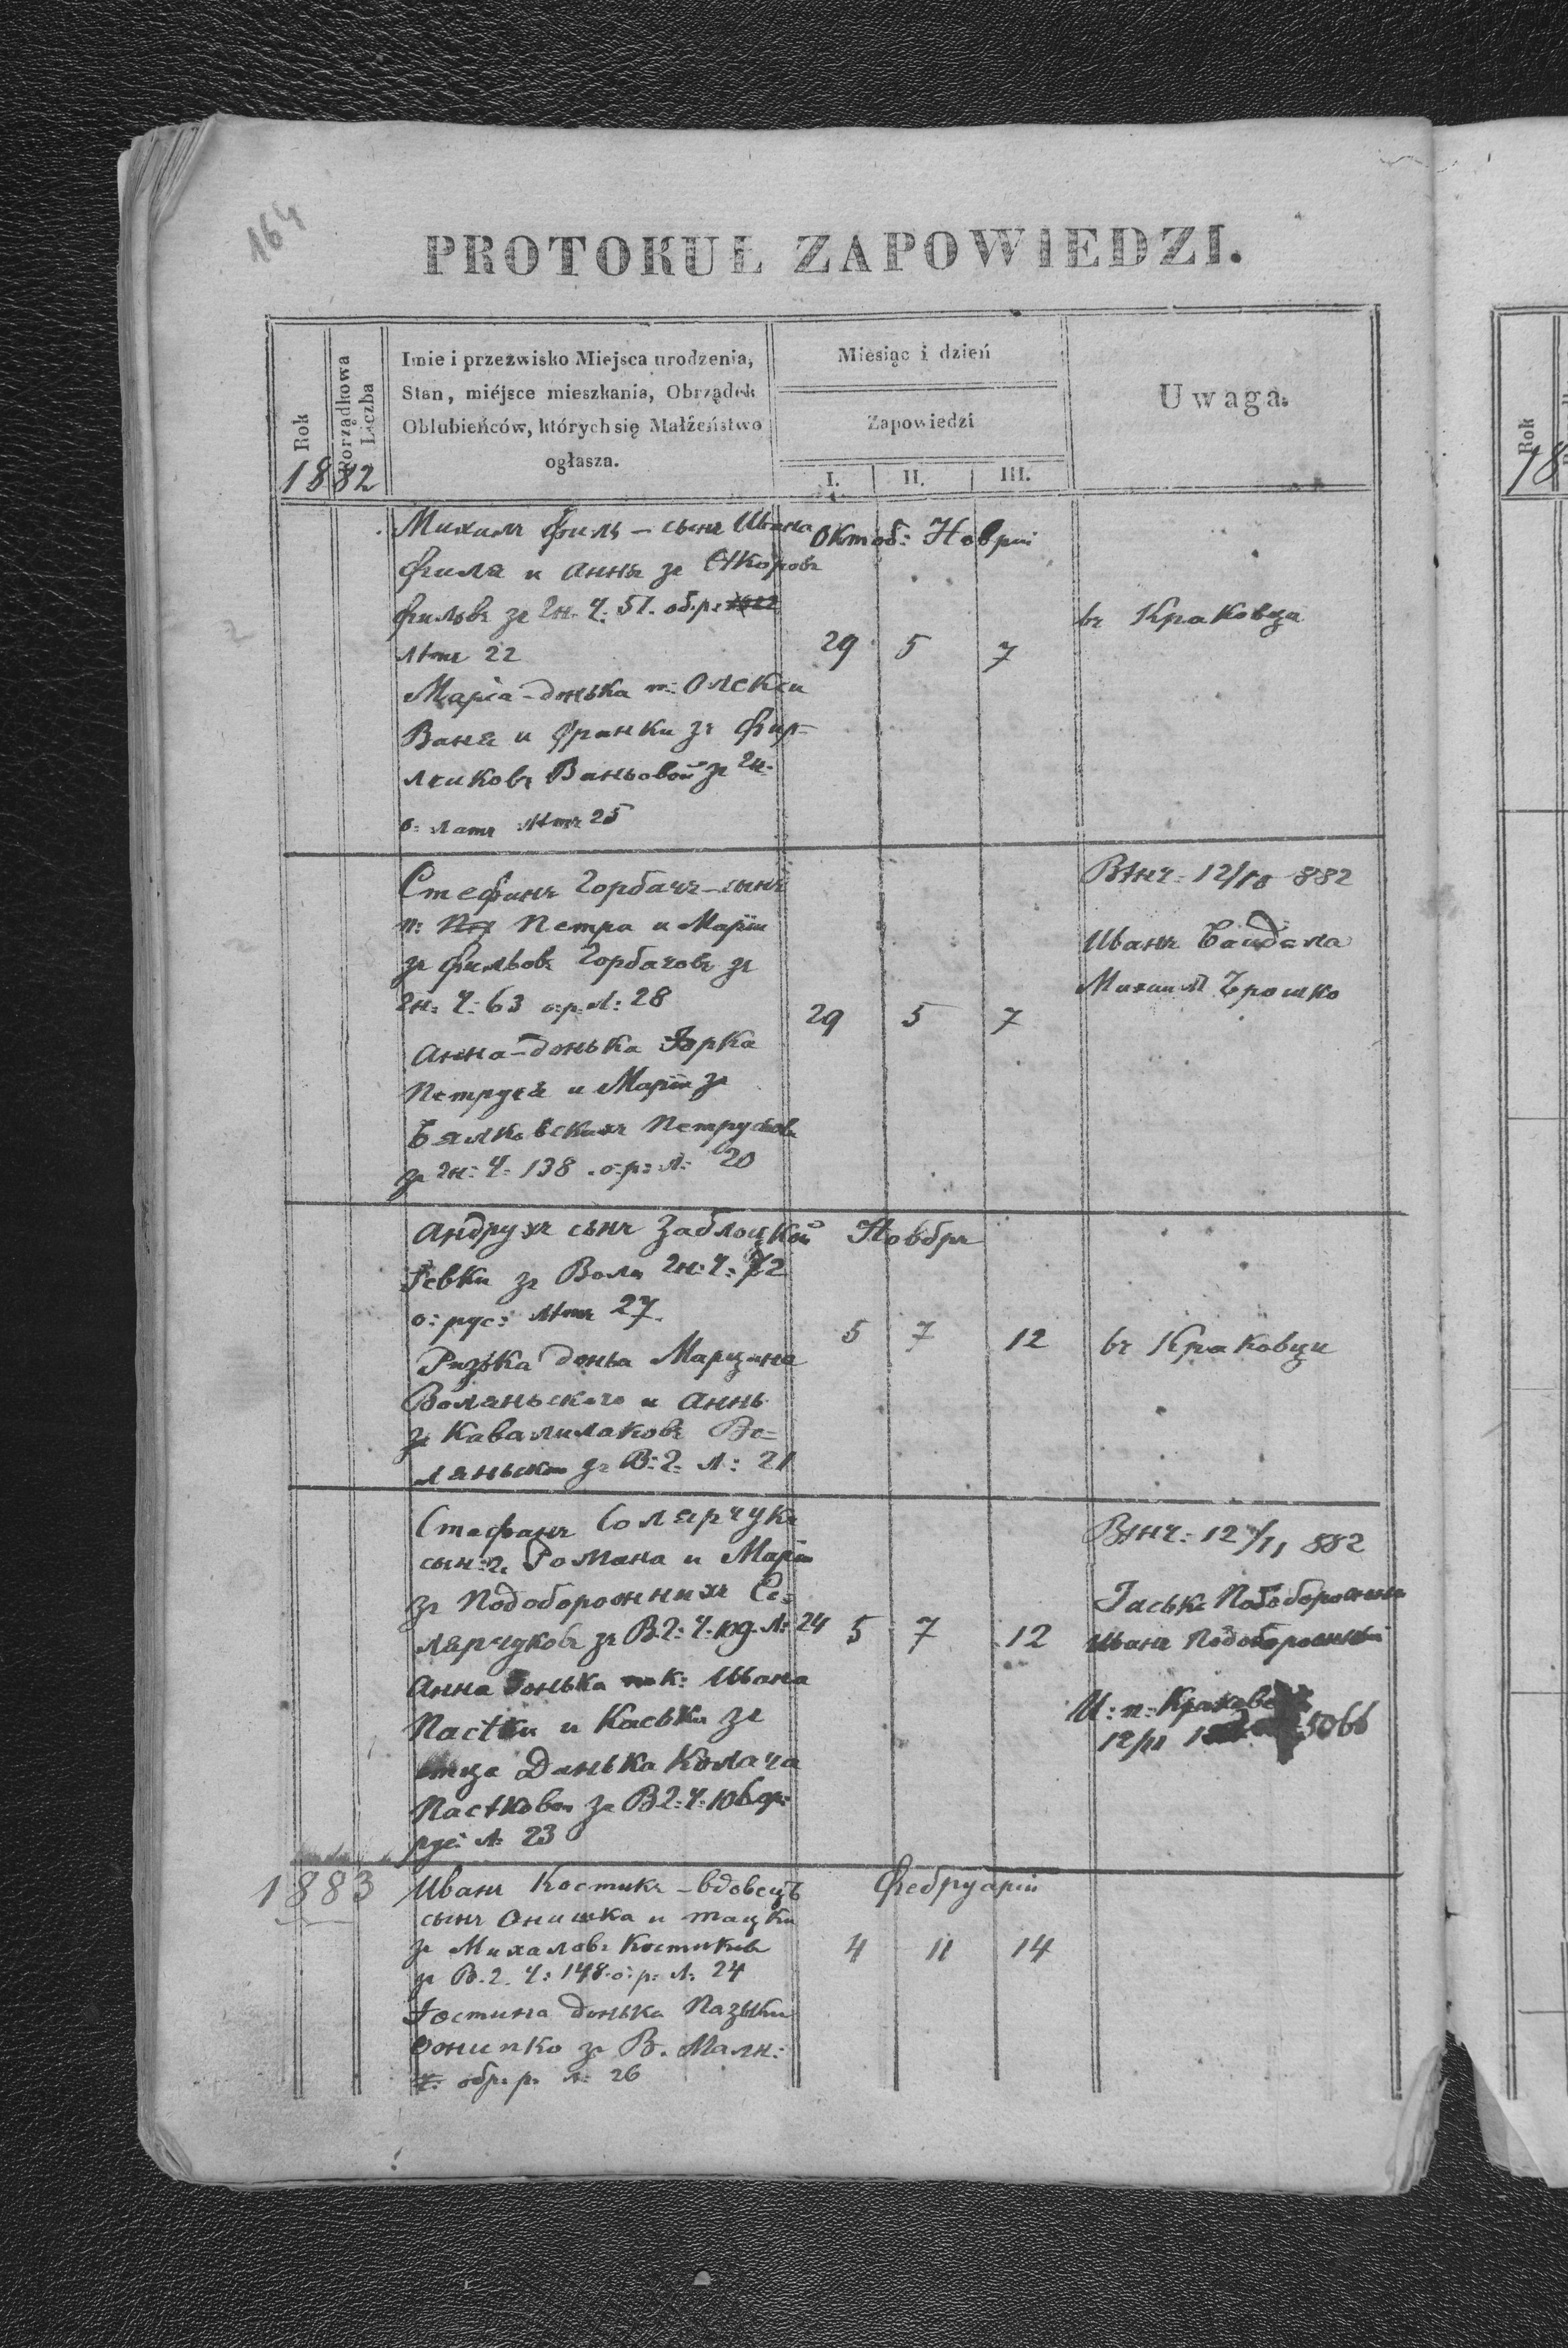 164
PROTOKUŁ ZAPOWIEDZI.
Rok
Porządkowa Liczba
Imie i przezwisko Miejsca urodzenia,
Stan, miéjsce mieszkania, Obrządek
Oblubieńców, których się Małżeństwo
ogłasza.
Miesiąc i dzień
Zapowiedzi
I. II. III.
Uwaga.
1882
Михаилъ Филь – сынъ Ивана
Филя и Анны зъ
Фильвъ зъ Гн. Ч. 51. обр.
лѣтъ 22
Марія – донька п: Олекси
Ваня и Франки зъ Фир-
ликовъ Ваньовой зъ Гн.
о: лат: лѣтъ 25
Октоб: Новрія
29 5 7
въ Краковци
Стефанъ Горбачъ – сынъ
п: Петра и Маріи
зъ Фильовъ Горбачовъ зъ
Гн. Ч: 63 о: р: Л: 28
Анна – донька Юрка
Петруся и Маріи зъ
Бялковскихъ Петрусьовъ
зъ Гн: Ч: 138. о: р: л: 20
29 5 7
Вѣнч: 12/10 882
Иванъ Байдала
Михаил Брошко
Андрухъ сынъ Заблоцкой
Евки зъ Воли Гн: Ч: 72
о: рус: лѣтъ 27.
Розька доньа Марцина
Воляньского и Анны
зъ Кавалилаковъ Во=
ляньской зъ В: Г: Л: 21
Новбрь
5 7 12
въ Краковци
Стефанъ Солярчукъ
сын: п. Романа и Маріи
зъ Подобороожнихъ Со=
лярчуковъ зъ В. Г: Ч: 109. Л: 24
Анна донька Ивана
Пастки и Каськи зъ
отца Данька Колача
Пастковой зъ В. Г: Ч: 106 обр:
рус: Л: 23
5 7 12
Вѣнч: 12/11 882
Гаська
Иванъ Подоборожный
И: п: Краковец
12/11 5066
1883
Иванъ Костикъ – вдовецъ
сынъ Онишка и Тацки
зъ Михаловъ Костиковъ
зъ В. Г. Ч: 148. о: р: Л: 24
Юстина донька Пазьки
Онипко зъ В. Малн:
обр: р: л: 26
Фебруарій
4 11 14
Rok
18